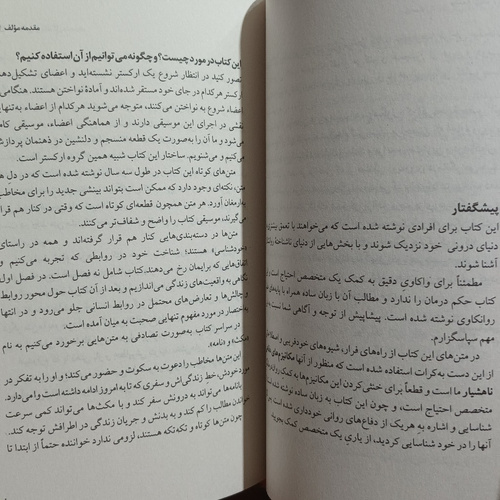 پیشگفتار
این کتاب برای افرادی نوشته شده است که می‌خواهند با تعمق بیشتری به
دنیای درونی خود نزدیک شوند و با بخش‌هایی از دنیای ناشناختهٔ
آشنا شوند.
مطمئناً برای واکاوی دقیق به کمک یک متخصص احتیاج است
کتاب حکم درمان را ندارد و مطالب آن با زبان ساده همراه با پایه‌های
روانکاوی نوشته شده است. پیشاپیش از توجه و آگاهی شما
مهم سپاسگزارم.
در متن‌های این کتاب از راه‌های فرار، شیوه‌های خودفریبی و
از این دست به‌کرات استفاده شده است که منظور از آنها مکانیزم‌های
ناهشیار ما است و قطعاً برای خنثی‌کردن این مکانیزم‌ها به کمک
متخصص احتیاج است، و چون این کتاب به زبان ساده نوشته شده
شناسایی و اشاره به هریک از دفاع‌های روانی خودداری شده است،
آنها را در خود شناسایی کردید، از یاریِ یک متخصص کمک بجویید
مقدمه مؤلف
این کتاب در مورد چیست؟ و چگونه می‌توانیم از آن استفاده کنیم؟
تصور کنید در انتظار شروع یک ارکستر نشسته‌اید و اعضای تشکیل‌دهنده
ارکستر هرکدام در جای خود مستقر شده‌اند و آمادهٔ نواختن هستند. هنگامی
اعضاء شروع به نواختن می‌کنند، متوجه می‌شوید هرکدام از اعضاء به‌تنهایی
نقشی در اجرای این موسیقی دارند و از هماهنگی اعضاء، موسیقی کامل
می‌شود و ما آن را به‌صورت یک قطعه منسجم و دلنشین در ذهنمان پردازش
می‌کنیم و می‌شنویم. ساختار این کتاب شبیه همین گروه ارکستر است.
متن‌های کوتاه این کتاب در طول سه سال نوشته شده است که در دلِ هر
متن، نکته‌ای وجود دارد که ممکن است بتواند بینشی جدید را برای مخاطب
به‌ارمغان آورد. هر متن همچون قطعه‌ای است که وقتی در کنار هم قرار
می‌گیرند، موسیقی کتاب را واضح و شفاف‌تر می‌کنند.
متن‌ها در دسته‌بندی‌هایی کنار هم قرار گرفته‌اند و همه در راستای
«خودشناسی» هستند؛ شناخت خود در روابطی که تجربه می‌کنیم و
اتفاق‌هایی که برایمان رخ می‌دهند. کتاب شامل نه فصل است. در فصل اول
نگاهی به واقعیت‌های زندگی می‌اندازیم و بعد از آن کتاب حول محور روابط،
چالش‌ها و تعارض‌های محتمل در روابط انسانی جلو می‌رود و در انتها
به‌اختصار در مورد مفهوم تنهایی صحبت به میان آمده است.
در سراسر کتاب به‌صورت تصادفی به متن‌هایی برخورد می‌کنیم به نام
«مکث» و «نامه».
این متن‌ها مخاطب را دعوت به سکوت و حضور می‌کند؛ و او را به تفکر در
مورد خودش، خط زندگی‌اش و سفری که تا به امروز ادامه داشته است وا می‌دارد.
نامه‌ها می‌تواند به درونش سفر کند و با مکث‌ها می‌تواند کمی سرعت
خواندن مطالب را کم کند و به بدنش و جریان زندگی در اطرافش توجه کند.
چون متن‌ها کوتاه و تکه‌تکه هستند، لزومی ندارد خواننده حتماً از ابتدا تا